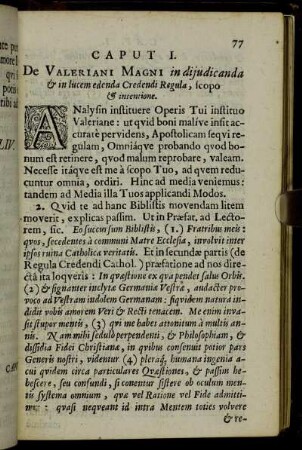 77
CAPUT I.
De VALERIANI MAGNI in dijudicanda
& in lucem edenda Credendi Regula, scopo
& intentione.
ANalysin instituere Operis Tui instituo
Valeriane: ut qvid boni malive insit ac-
curatè pervidens, Apostolicam seqvi re-
gulam, Omniáqve probando qvod bo-
num est retinere, qvod malum reprobare, valeam.
Necesse itáqve est me à scopo Tuo, ad qvem redu-
cuntur omnia, ordiri. Hinc ad media veniemus:
tandem ad Media illa Tuos applicandi Modos.
2. Qvid te ad hanc Biblistis movendam litem
moverit, explicas passim. Ut in Præfat. ad Lecto-
rem, sic. Eo succensum Biblistis, (1.) Fratribus meis:
qvos, secedentes à communi Matre Ecclesia, involvit inter
ipsos ruina Catholicæ veritatis. Et in secundæ partis (de
Regula Credendi Cathol.) præfatione ad nos dire-
ctâ ita loqveris: In qvæstione ex qva pendet salus Orbis.
(2) & signanter inclytæ Germaniæ Vestræ, audacter provo-
co ad Vestram indolem Germanam: siqvidem natura in-
didit vobis amorem Veri & Recti tenacem. Me enim inva-
sit stupor mentis, (3) qvi me habet attonitum à multis an-
nis. Nam mihi sedulò perpendenti, & Philosophiam, &
dissidia Fidei Christianæ, in qvibus consenuit potior pars
Generis nostri, videntur (4) pleraq; humana ingenia a-
cui qvidem circa particulares Qvæstiones, & passim he-
bescere, seu confundi, si conentur sistere ob oculum men-
tis systema omnium, qvæ vel Ratione vel Fide admitti-
mus: qvasi neqveant id intra Mentem toties volvere
& re-